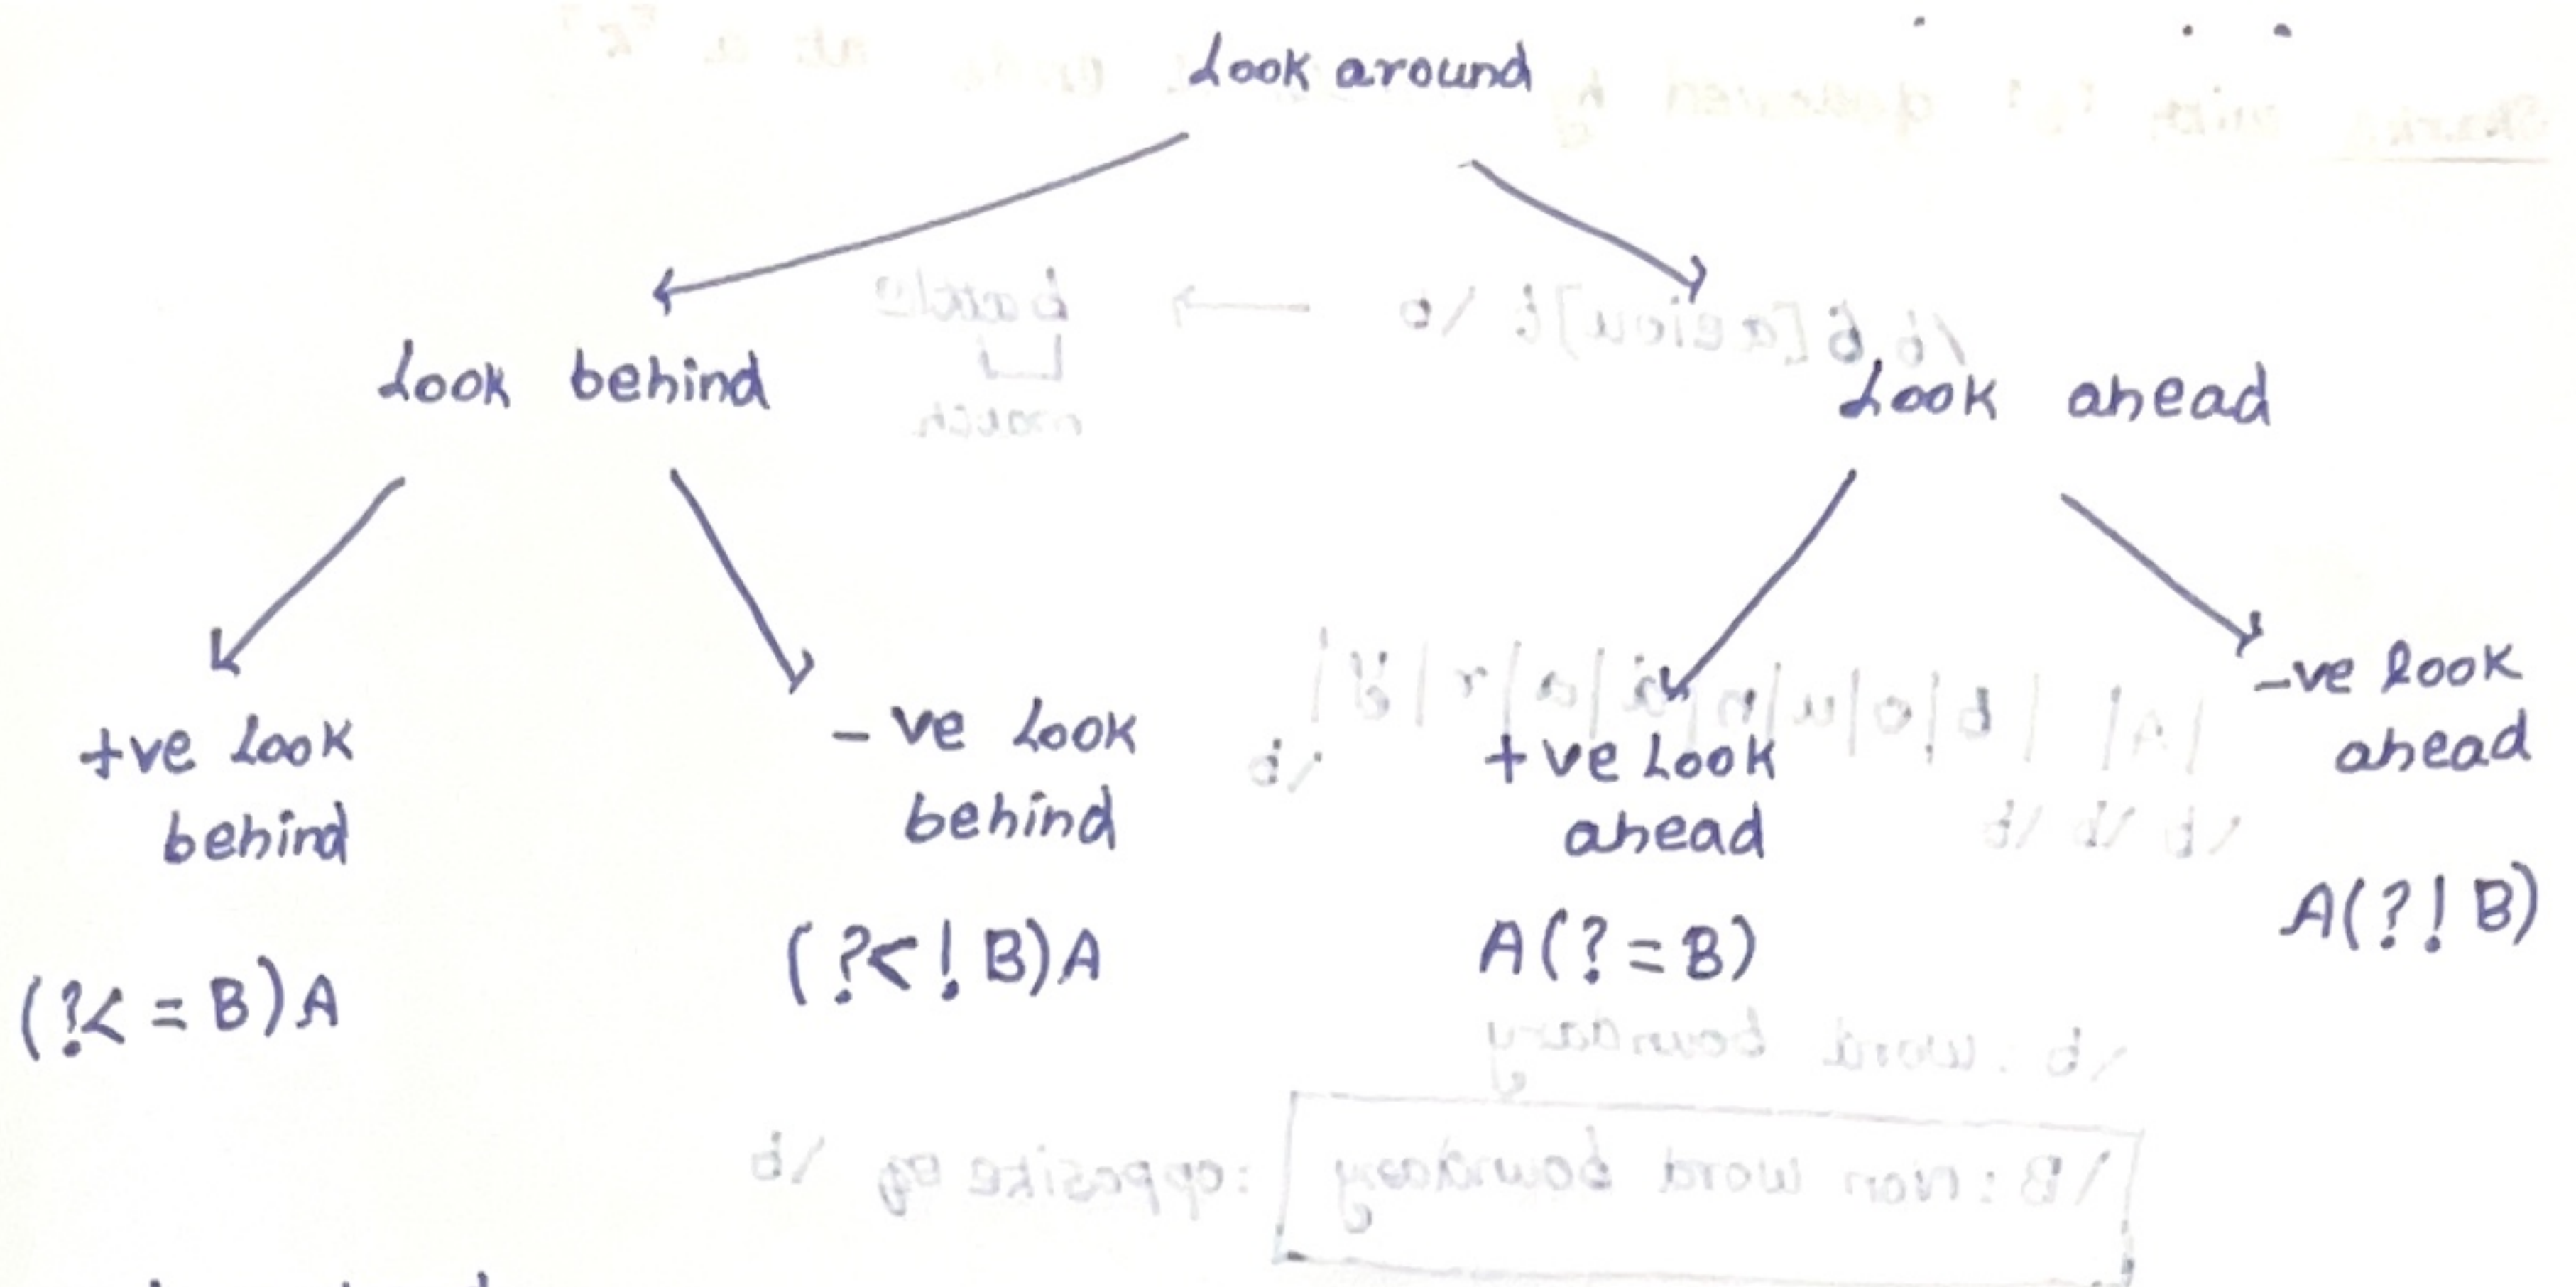 Look around
Look behind
Look ahead
+ve Look
behind
- ve Look
behind
+ve Look
ahead
-ve look
ahead
(?<=B)A
(?<!B)A
A(?=B)
A(?!B)